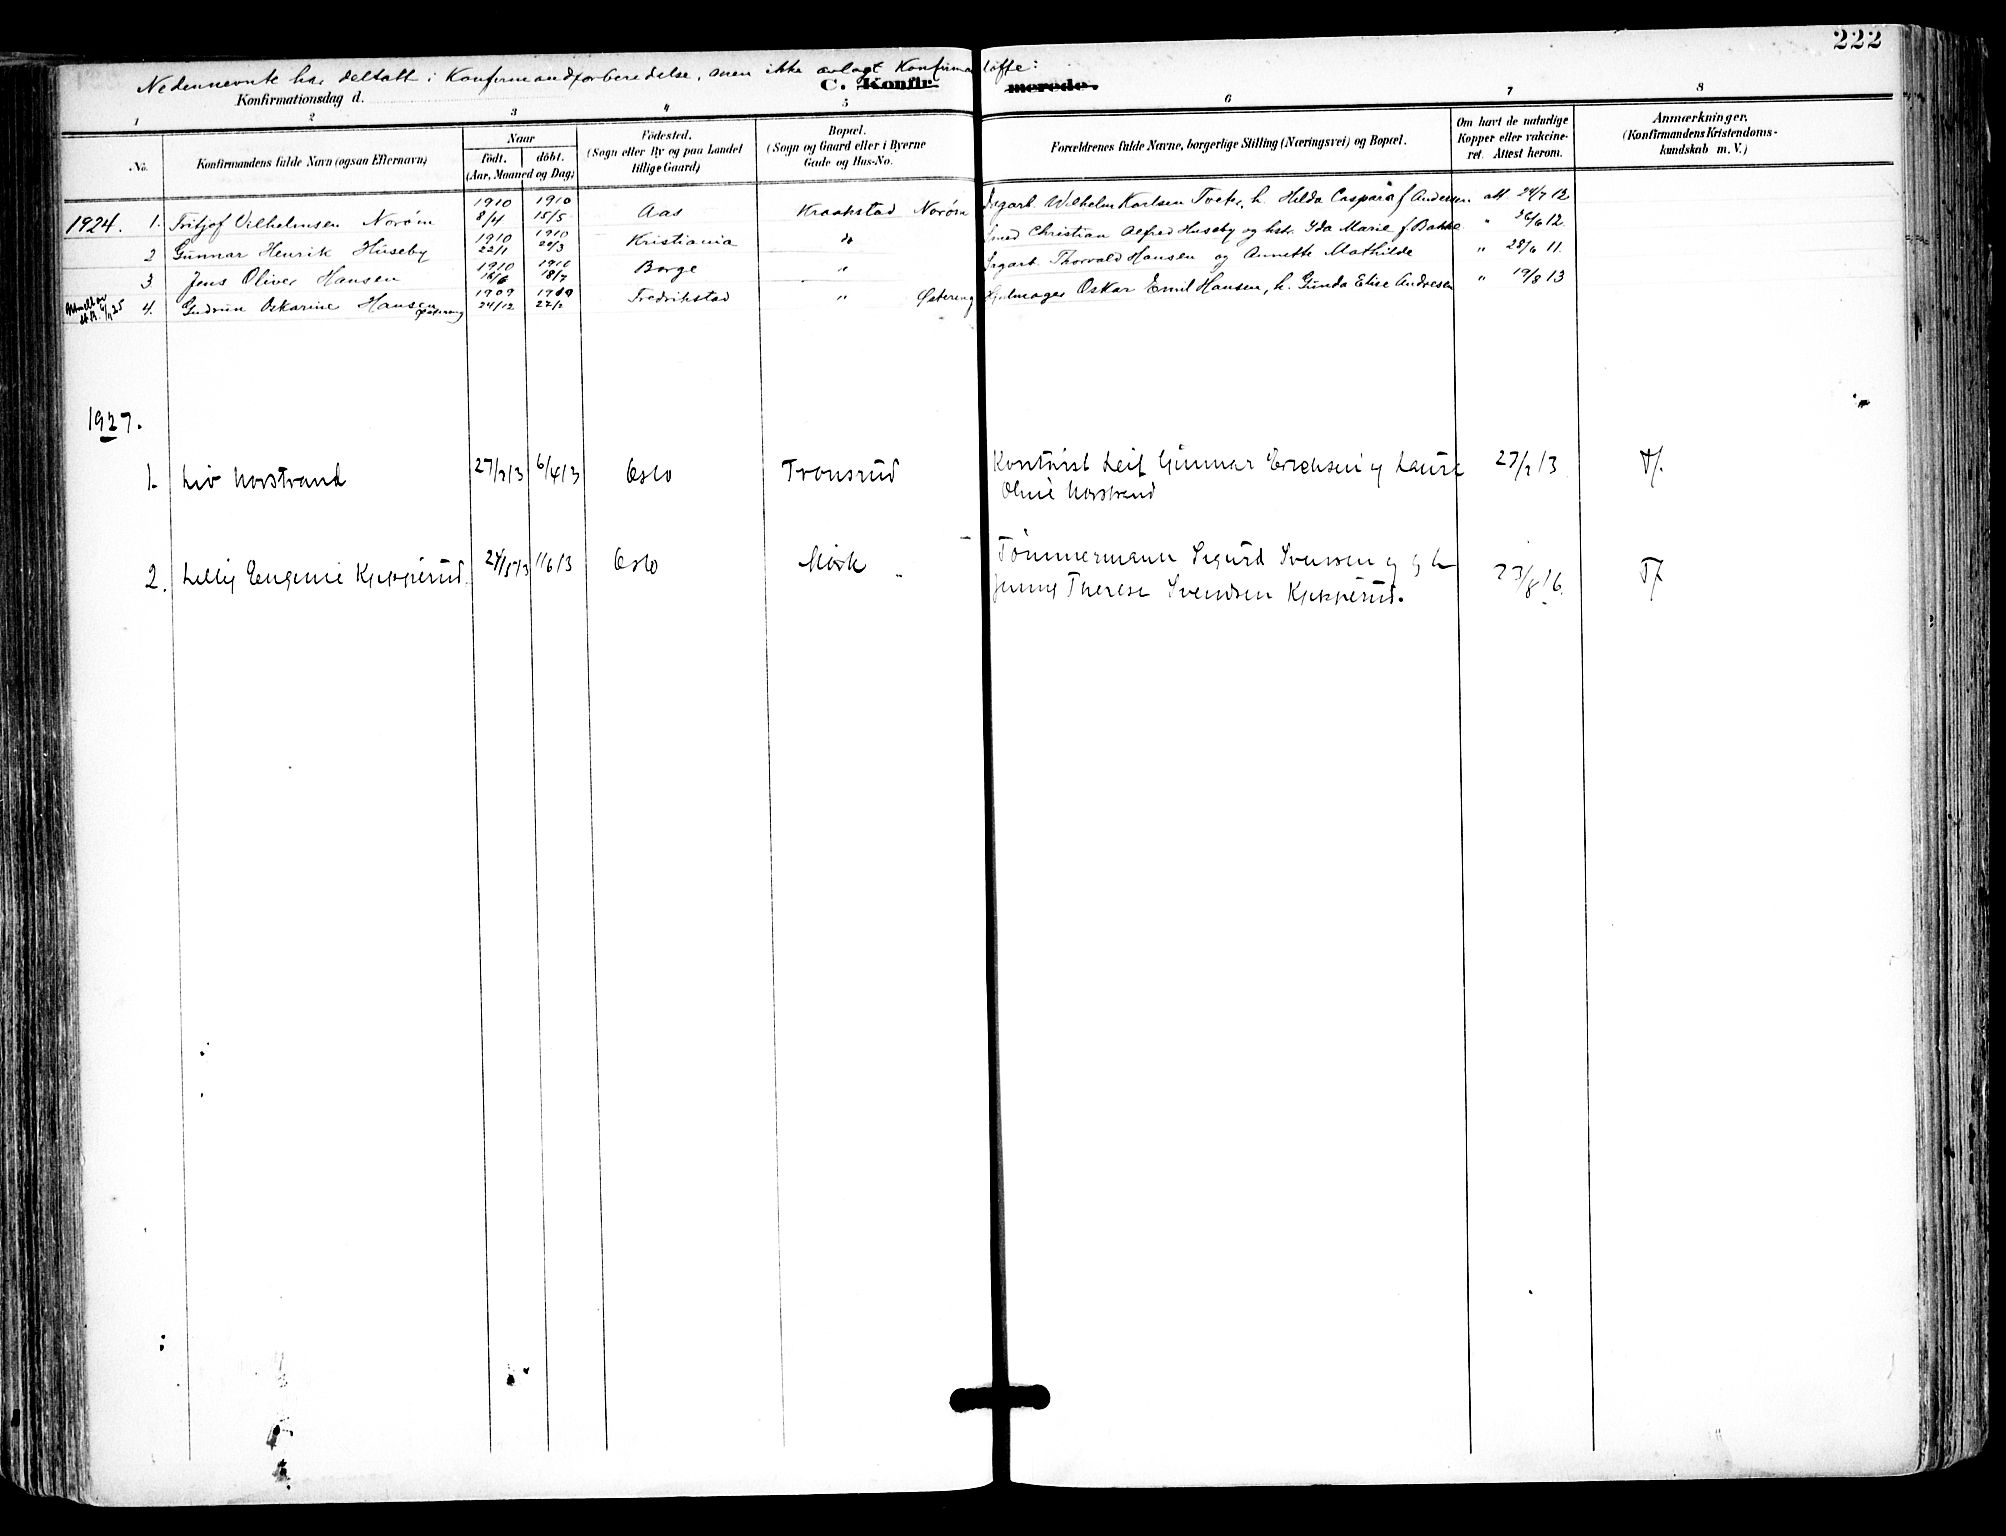 222
Nedennevnte har deltatt i Konfirmandforberedelse, men ikke avlagt Konfirma løfte:
C. Konfirmerede.
Konfirmationsdag d.
1 2 3 4 5 6 7 8
No.
Konfirmandens fulde Navn (ogsaa Efternavn)
Naar
födt. döbt.
(Aar, Maaned og Dag)
Födested.
(Sogn eller By og paa Landet
tillige Gaard)
Bopæl.
(Sogn og Gaard eller i Byerne
Gade og Hus-No.
Forældrenes fulde Navne, borgerlige Stilling (Næringsvei) og Bopæl.
Om havt de naturlige
Kopper eller vakcine-
ret. Attest herom.
Anmærkninger.
(Konfirmandens Kristendoms-
kundskab m. V.)
1924. 1. Fritjof Vilhelmsen Norøm 1910 8/4 1910 15/5 Aas Kraakstad Norøm Jrgarb. Wilhelm Karlsen Tveter, h. Hilda Caspara f Andersen att 24/7 12
2 Gunnar Henrik Huseby 1910 22/1 1910 24/3 Kristiania do Smed Christian Alfred Huseby og hstr. Ida Marie f Bakke " 26/6 12.
3 Jens Oliver Hansen 1910 16/6 1910 18/7 Borge " Jrgarb. Thorvald Hansen og Annette Mathilde " 28/6 11.
4. Gudrun Oskarine Hansen Østereng 1909 24/12 1910 22/2 Fredrikstad " Østereng Oskar Emil Hansen, h. Gunda Elise Andresen " 19/8 13
1927.
1. Liv Norstrand 27/2 13 6/4 13 Oslo Tronsrud Kontorist Leif Gunnar Erichsen og Laura 27/2 13 T/.
Oline Norstrand
2. Lilly Eugenie Kjepperud. 24/5 13 1/6 13 Oslo Mørk Tømmermann Sigurd Svensen og h
Jenny Therese Svendsen Kjepperud. 23/8 16. T/